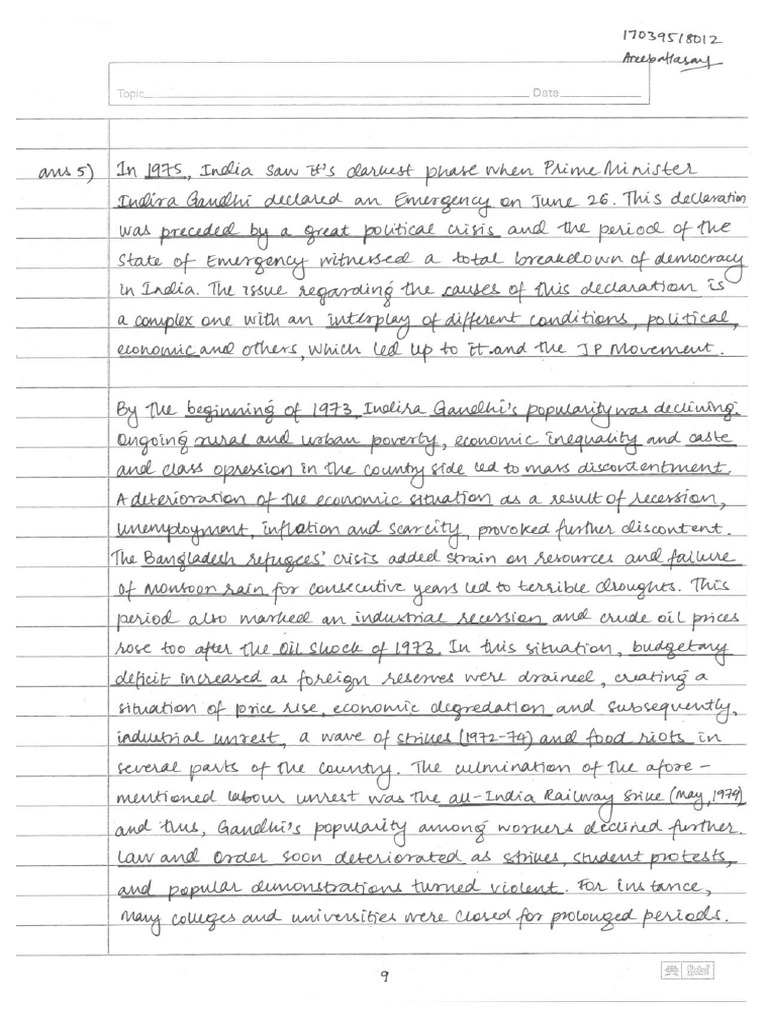 17039518012
Areeba Hasan
Topic Date
ans 5) In 1975, India saw it's darkest phase when Prime Minister
Indira Gandhi declared an Emergency on June 26. This declaration
was preceded by a great political crisis and the period of the
State of Emergency witnessed a total breakdown of democracy
in India. The issue regarding the causes of this declaration is
a complex one with an interplay of different conditions, political,
economic and others, which led up to it and the JP Movement.
By the beginning of 1973, Indira Gandhi's popularity was declining.
Ongoing rural and urban poverty, economic inequality and caste
and class opression in the country side led to mass discontentment.
A deterioration of the economic situation as a result of recession,
unemployment, inflation and scarcity, provoked further discontent.
The Bangladesh refugees' crisis added strain on resources and failure
of monsoon rain for consecutive years led to terrible droughts. This
period also marked an industrial recession and crude oil prices
rose too after the oil shock of 1973. In this situation, budgetary
deficit increased as foreign reserves were drained, creating a
situation of price rise, economic degredation and subsequently,
industrial unrest, a wave of strikes (1972-74) and food riots in
several parts of the country. The culmination of the afore-
mentioned labour unrest was the all-India Railway Srike (May, 1974)
and thus, Gandhi's popularity among workers declined further.
Law and Order soon deteriorated as strikes, student protests,
and popular demonstrations turned violent. For instance,
many colleges and universities were closed for prolonged periods.
9